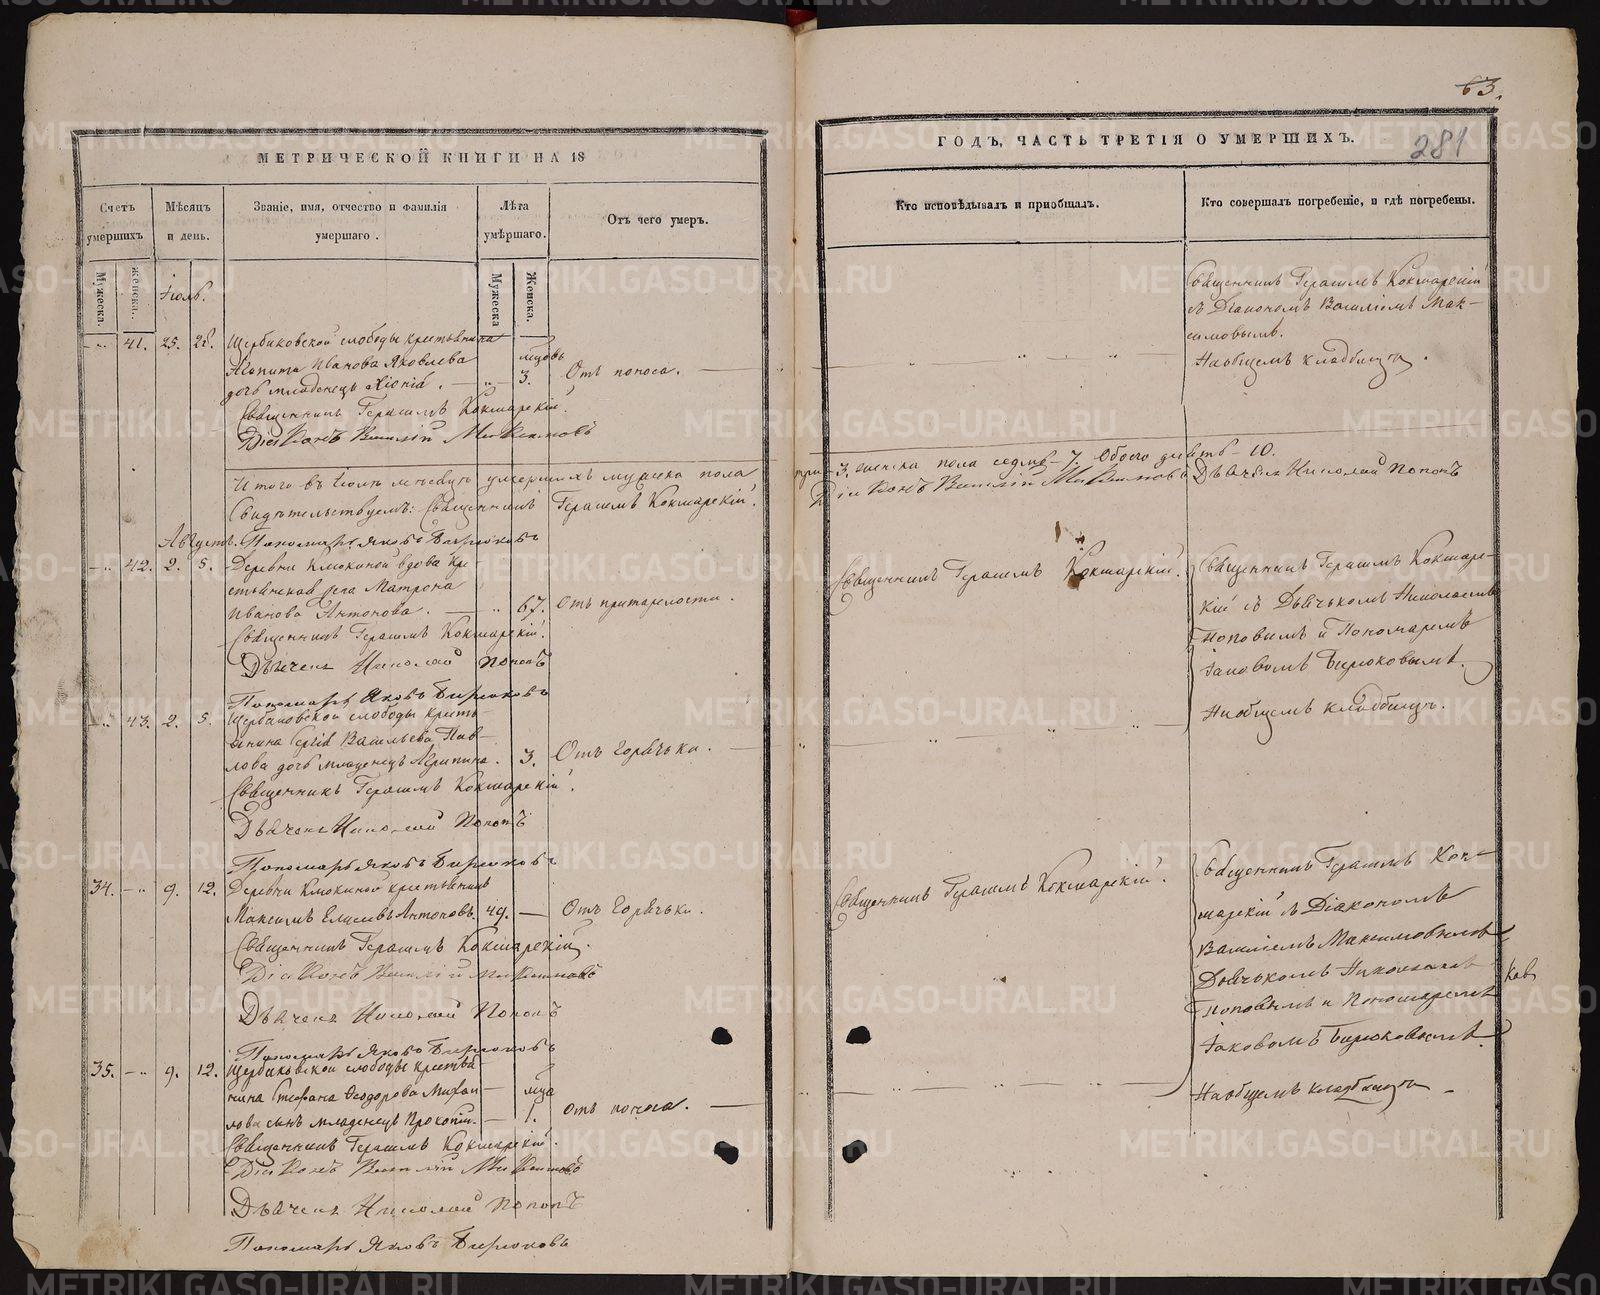 63.
281
МЕТРИЧЕСКОЙ КНИГИ НА 18
Счетъ умершихъ
Мужеска.
Женска.
Мѣсяцъ и день.
Званіе, имя, отчество и фамилія умершаго.
Лѣта умѣршаго.
Мужеска
Женска.
Отъ чего умеръ.
Іюль.
41. 25. 28. Щербаковской слободы крестьянина
Агапита Иванова Яковлева
мцовъ
дочь младенецъ Хіонія. 3. Отъ поноса.
Священникъ Герасимъ Кокшарскій.
Діаконъ Василій Максимовъ
Итого въ Іюлѣ мѣсяцѣ умершихъ мужска пола
Свидѣтельствуемъ: Священникъ Герасимъ Кокшарскій.
Августъ. Пономарь Яковъ Бирюковъ
42. 2. 5. Деревни Клюкиной вдова кре-
стьянская жена Матрона
Иванова Антонова. 67. Отъ пристарелости.
Священникъ Герасимъ Кокшарскій.
Дьячекъ Николай Поповъ
Пономарь Яковъ Бирюковъ
43. 2. 5. Щербаковской слободы кресть-
янина Сергія Васильева Пав-
лова дочь младенецъ Агрипина. 3. Отъ Горячьки.
Священникъ Герасимъ Кокшарскій.
Дьячекъ Николай Поповъ
Пономарь Яковъ Бирюковъ
34. 9. 12. Деревни Клюкиной крестьянинъ
Максимъ Елисеевъ Антоновъ. 49. Отъ Горячьки.
Священникъ Герасимъ Кокшарскій.
Діаконъ Василій Максимовъ
Дьячекъ Николай Поповъ
Пономарь Яковъ Бирюковъ
35. 9. 12. Щербаковской слободы крестья-
нина Стефана Ѳеодорова Михаи- мца
лова сынъ младенецъ Прокопій. 1. Отъ поноса.
Священникъ Герасимъ Кокшарскій.
Діаконъ Василій Максимовъ
Дьячекъ Николай Поповъ
Пономарь Яковъ Бирюковъ
ГОДЪ, ЧАСТЬ ТРЕТІЯ О УМЕРШИХЪ.
Кто исповѣдывалъ и пріобщалъ.
Кто совершалъ погребеніе, и гдѣ погребены.
Священникъ Герасимъ Кокшарскій
съ Діакономъ Василіемъ Мак-
симовымъ.
На общемъ кладбищѣ.
три 3, женска пола седмь 7. Обоего десять 10.
Діаконъ Василій Максимовъ Дьячекъ Николай Поповъ
Священникъ Герасимъ Кокшарскій.
Священникъ Герасимъ Кокшарс-
кій съ Дьячькомъ Николаемъ
Поповымъ и Пономаремъ
Іаковомъ Бирюковымъ.
На общемъ кладбищѣ.
Священникъ Герасимъ Кокшарскій.
Священникъ Герасимъ Кок-
шарскій съ Діакономъ
Василіемъ Максимовымъ
Дьячькомъ Николаемъ
Поповымъ и Пономаремъ
Іаковомъ Бирюковымъ.
На общемъ кладбищѣ
METRIKI.GASO-URAL.RU